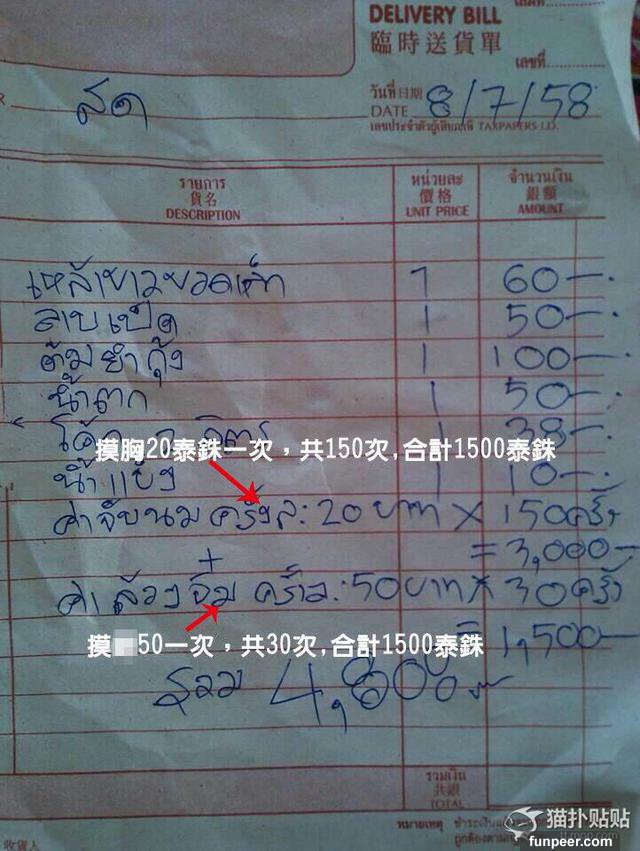 DELIVERY BILL
臨時送貨單
เลขที่
สด
วันที่ 日期
DATE 8/7/58
เลขประจำตัวผู้เสียภาษี TAXPAPERS I.D.
รายการ หน่วยละ จำนวนเงิน
貨名 價格 銀額
DESCRIPTION UNIT PRICE AMOUNT
เหล้าขาวยวดเห็ก 1 60-.
ลาบเป็ด 1 50-.
ต้มยำกุ้ง 1 100-.
น้ำตก 1 50-.
โค้ก ลิตร 1 38-.
摸胸20泰銖一次，共150次,合計1500泰銖
น้ำแข็ง 1 10-.
ค่าจับนม ครั้งล: 20 บาท × 150 ครั้ง
= 3,000-
+
ค่าล้วงจิ๋ม ครั้งล: 50 บาท × 30 ครั้ง
= 1,500-
摸 50一次，共30次,合計1500泰銖
รวม 4,808
รวมเงิน
共銀
TOTAL
หมายเหตุ
收貨人
猫扑贴贴
funpeer.com